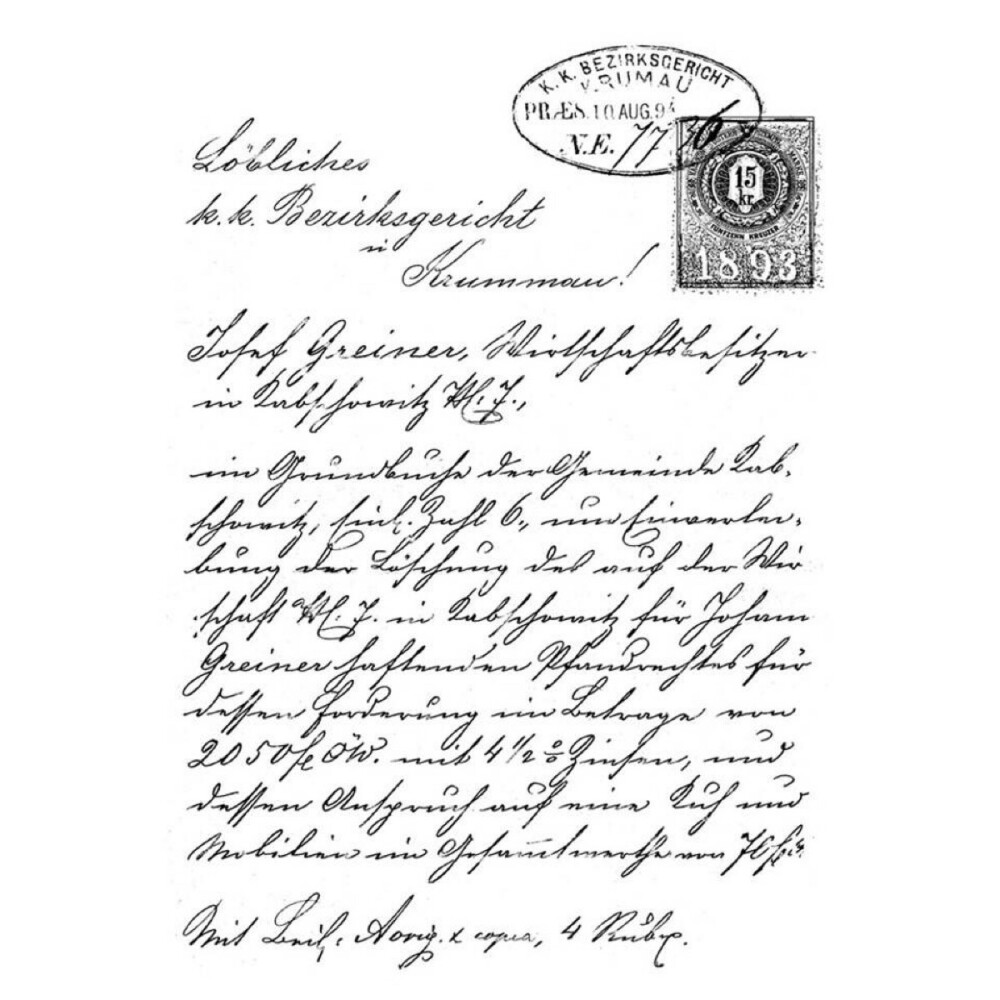 K. K. BEZIRKSGERICHT
KRUMAU
PRÆS. 10 AUG. 9
N.E. 7736
15
kr.
FÜNFZEHN KREUZER
1893
Löbliches
k. k. Bezirksgericht
in
Krummau!
Josef Greiner, Wirtschaftsbesitzer
in Kabschowitz No. 7.,
im Grundbuche der Gemeinde Kab-
schowitz, Einl. Zahl 6., um Einverlei-
bung der Löschung des auf der Wir
schaft No. 7. in Kabschowitz für Johann
Greiner haftenden Pfandrechtes für
dessen Forderung im Betrage von
2050 fl ÖW. mit 4 1/2 % Zinsen, und
dessen Anspruch auf eine Kuh und
Mobilien im Gesammtwerthe von 70 fl
Mit Beil: 1 orig. & copia, 4 Rubr.